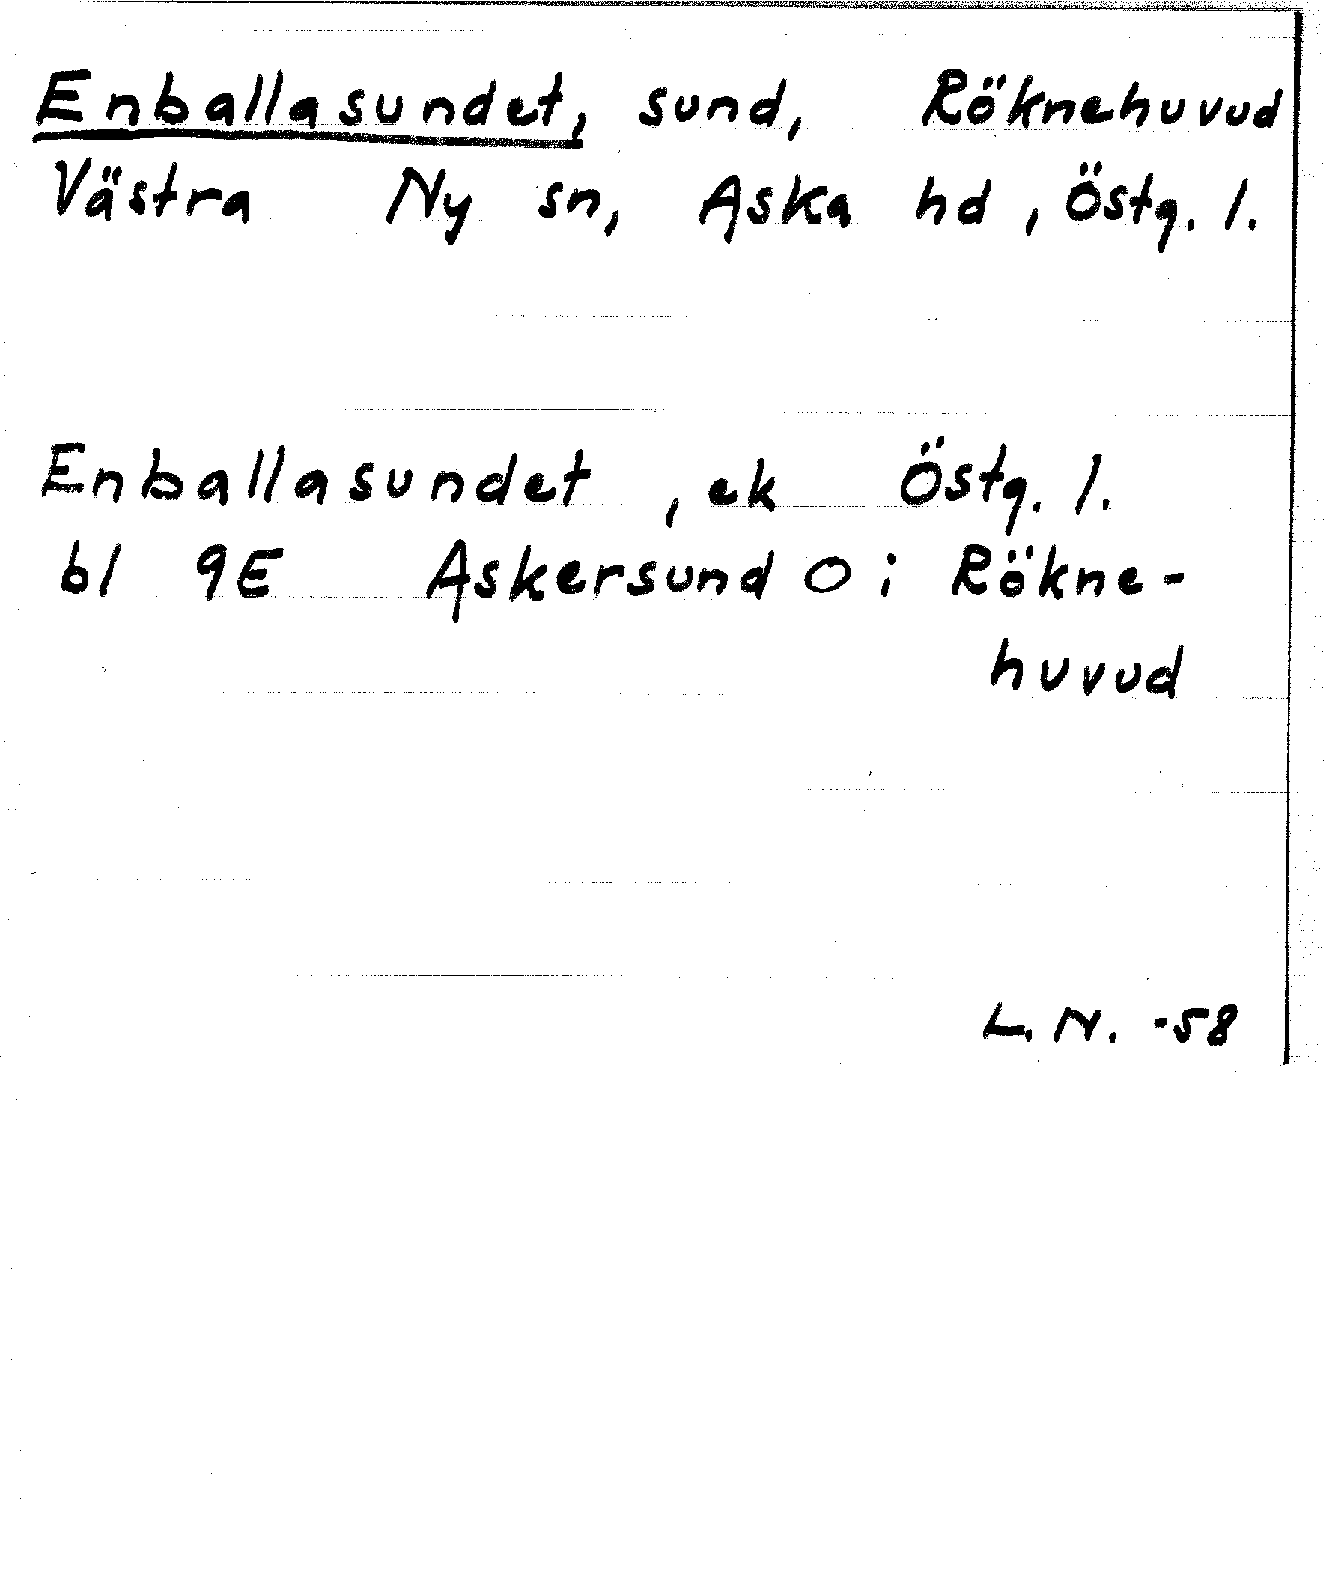 Enballasundet, sund, Röknehuvud
Västra Ny sn, Aska hd, Östg. l.
Enballasundet, ek Östg. l.
bl 9E Askersund O i Rökne-
huvud
L. N. -58